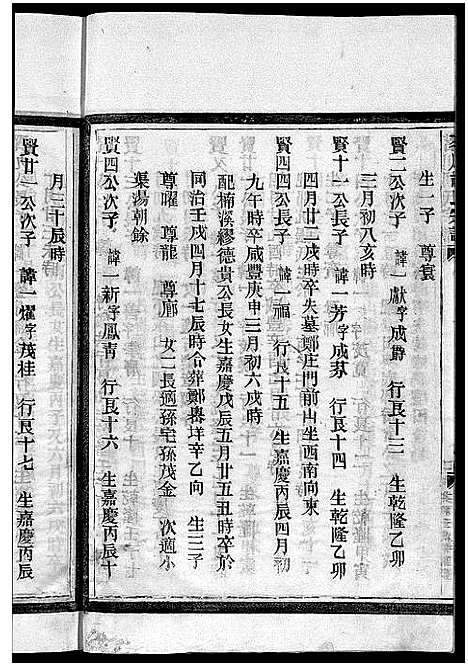 生一子　尊寰
賢二公次子　諱一猷字成爵　行艮十三　生乾隆乙卯
三月初八亥時
賢十一公長子　諱一芳字成荪　行艮十四　生乾隆乙卯
四月廿二戌時卒失墓鄭庄門前山坐西南向東
賢四四公長子　諱一福　行艮十五　生嘉慶丙辰四月初
九午時卒咸豐庚申三月初六戌時
配楠溪繆德貴公長女生嘉慶戊辰五月廿五丑時卒於
同治壬戌四月十七辰時合葬鄭嶴垟辛乙向　生三子
尊曜　尊龍　尊廊　女二長適孫宅孫茂金　次適小
渠湯朝餘
賢四公次子　諱一新字鳳青　行艮十六　生嘉慶丙辰十
月三十辰時
賢廿一公次子　諱一燿字茂桂　行艮十七　生嘉慶丙辰